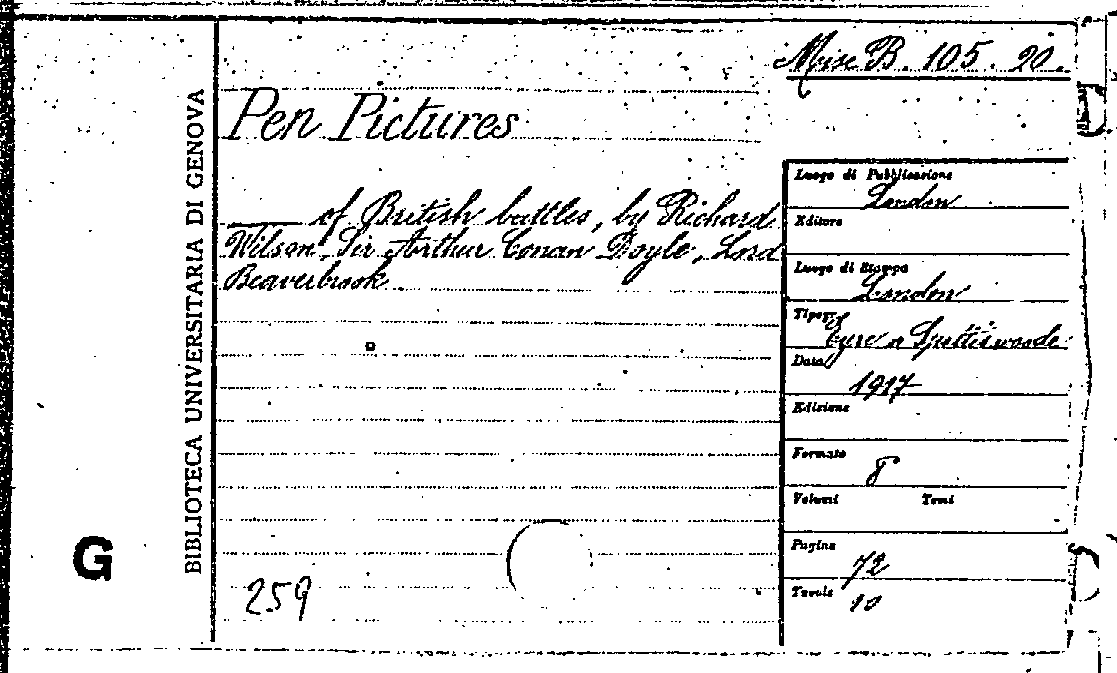 Misc B. 105. 20.
Pen Pictures
____ of British battles, by Richard
Wilson, Sir Arthur Conan Doyle, Lord
Beaverbrook
259
G
BIBLIOTECA UNIVERSITARIA DI GENOVA
Luogo di Pubblicazione
London
Editore
Luogo di Stampa
London
Tipogr.
Eyre a Spottiswoode
Data
1917
Edizione
Formato
8
Volumi Tomi
Pagine
72
Tavole
10